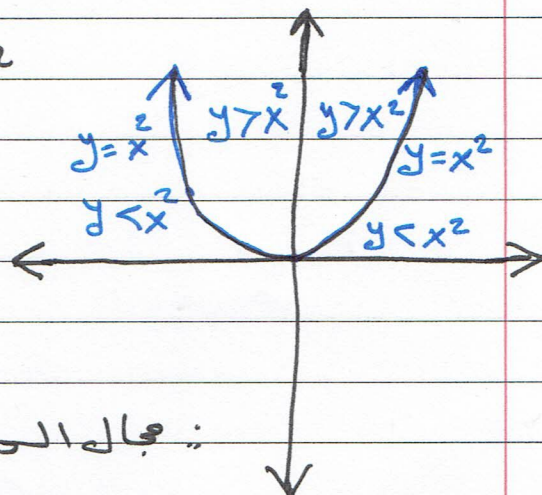 2
y > x² y > x²
y = x² y = x²
y < x² y < x²
∴ مجال